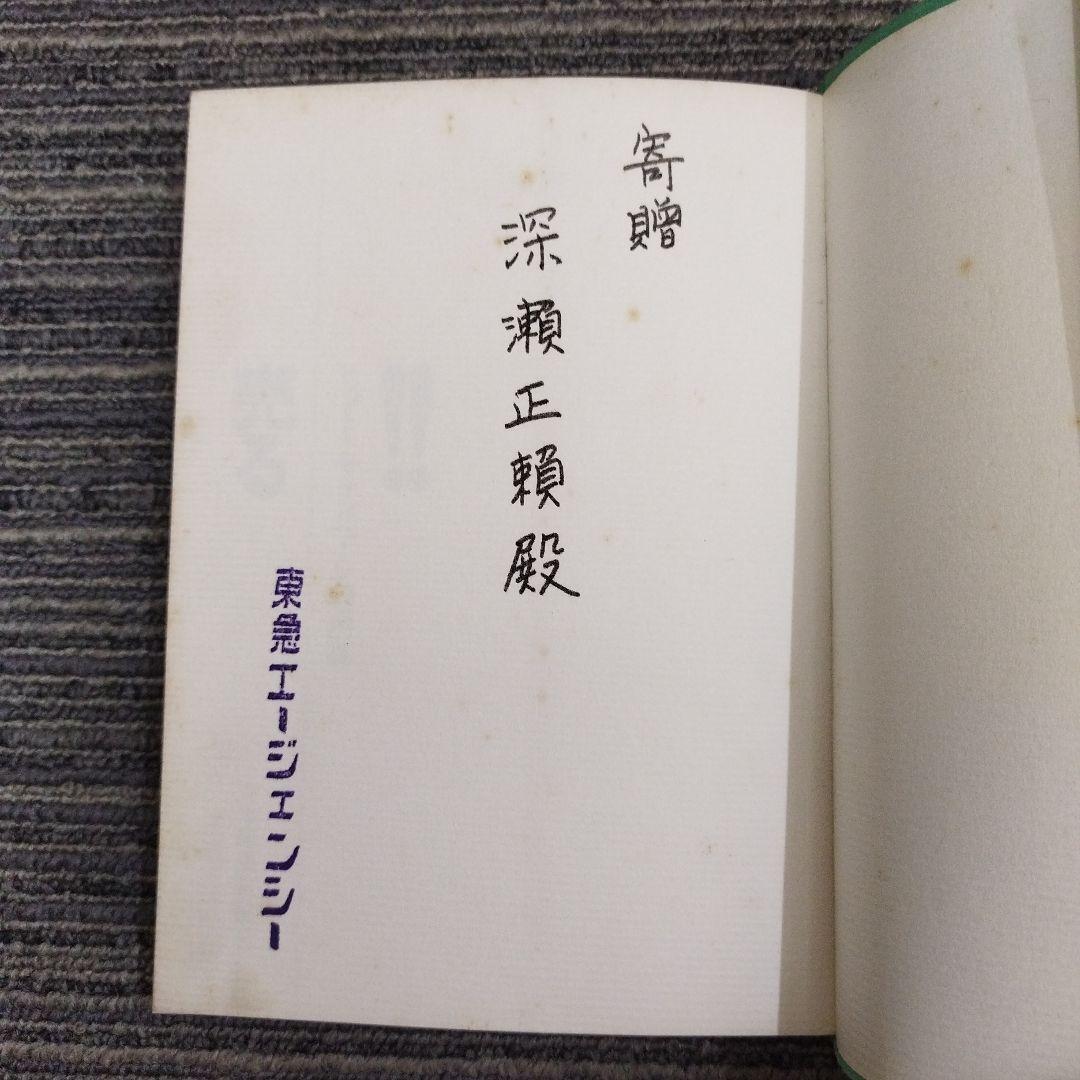 寄贈
深瀬正頼殿
東急エージェンシー